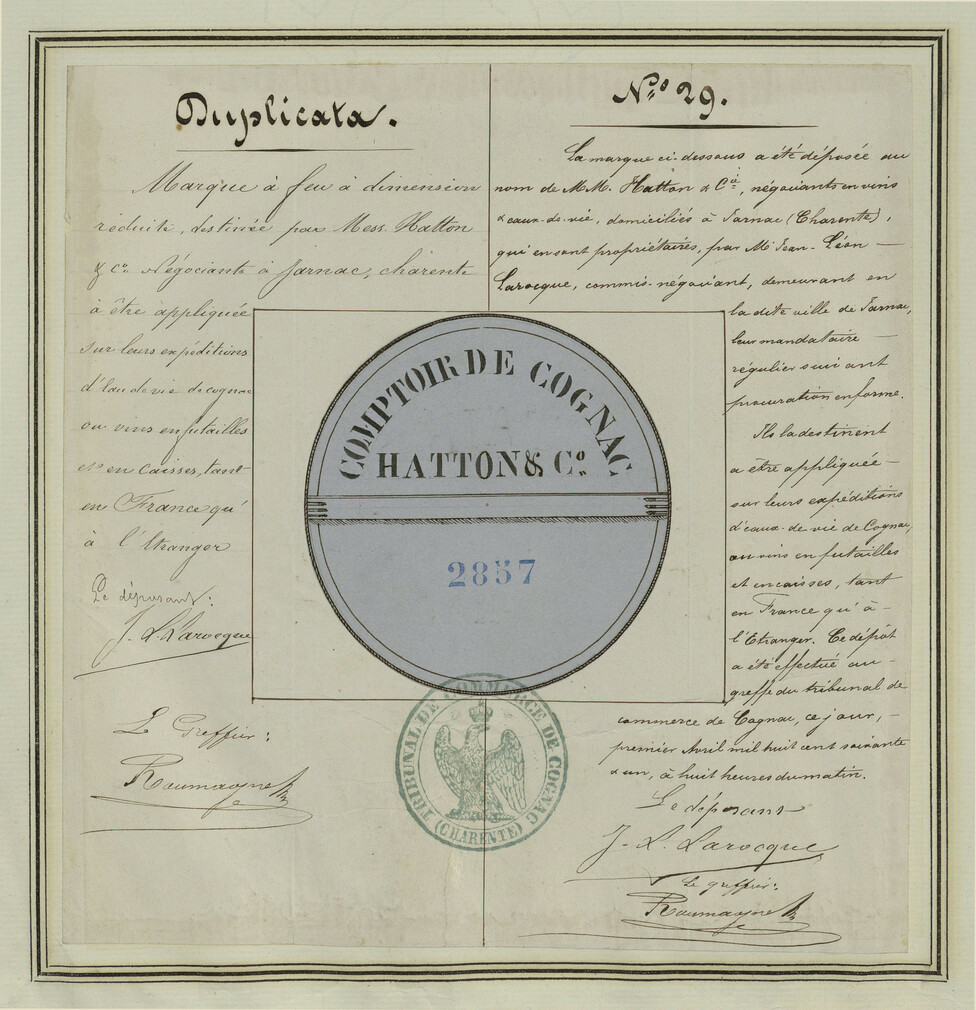 Duplicata.
Marque à feu à dimension
réduite, destinée par Mess. Hatton
& Co. Négociants à Jarnac, charente
à être appliquée
sur leurs expéditions
d'Eau de vie de cognac
ou vins en futailles
et en Caisses, tant
en France qu'
à l'Etranger
Le déposant:
J. L. Larocque
Le Greffier:
Roumayne
Nº 29.
La marque ci-dessous a été déposée au
nom de MM. Hatton & Cie, négociants en vins
& eaux-de-vie, domiciliés à Jarnac (Charente),
qui en sont propriétaires, par Mr Jean-Léon
Larocque, commis-négociant, demeurant en
la dite ville de Jarnac,
leur mandataire
régulier suivant
procuration en forme.
Ils la destinent
à être appliquée
sur leurs expéditions
d'eaux-de-vie de Cognac,
ou vins en futailles
et en caisses, tant
en France qu'à
l'Etranger. Ce dépôt
a été effectué au
greffe du tribunal de
commerce de Cognac, ce jour,
premier Avril mil huit cent soixante
& un, à huit heures du matin.
Le déposant
J. L. Larocque
Le greffier:
Roumayne
COMPTOIR DE COGNAC
HATTON & Co.
2857
TRIBUNAL DE COMMERCE DE COGNAC
(CHARENTE)